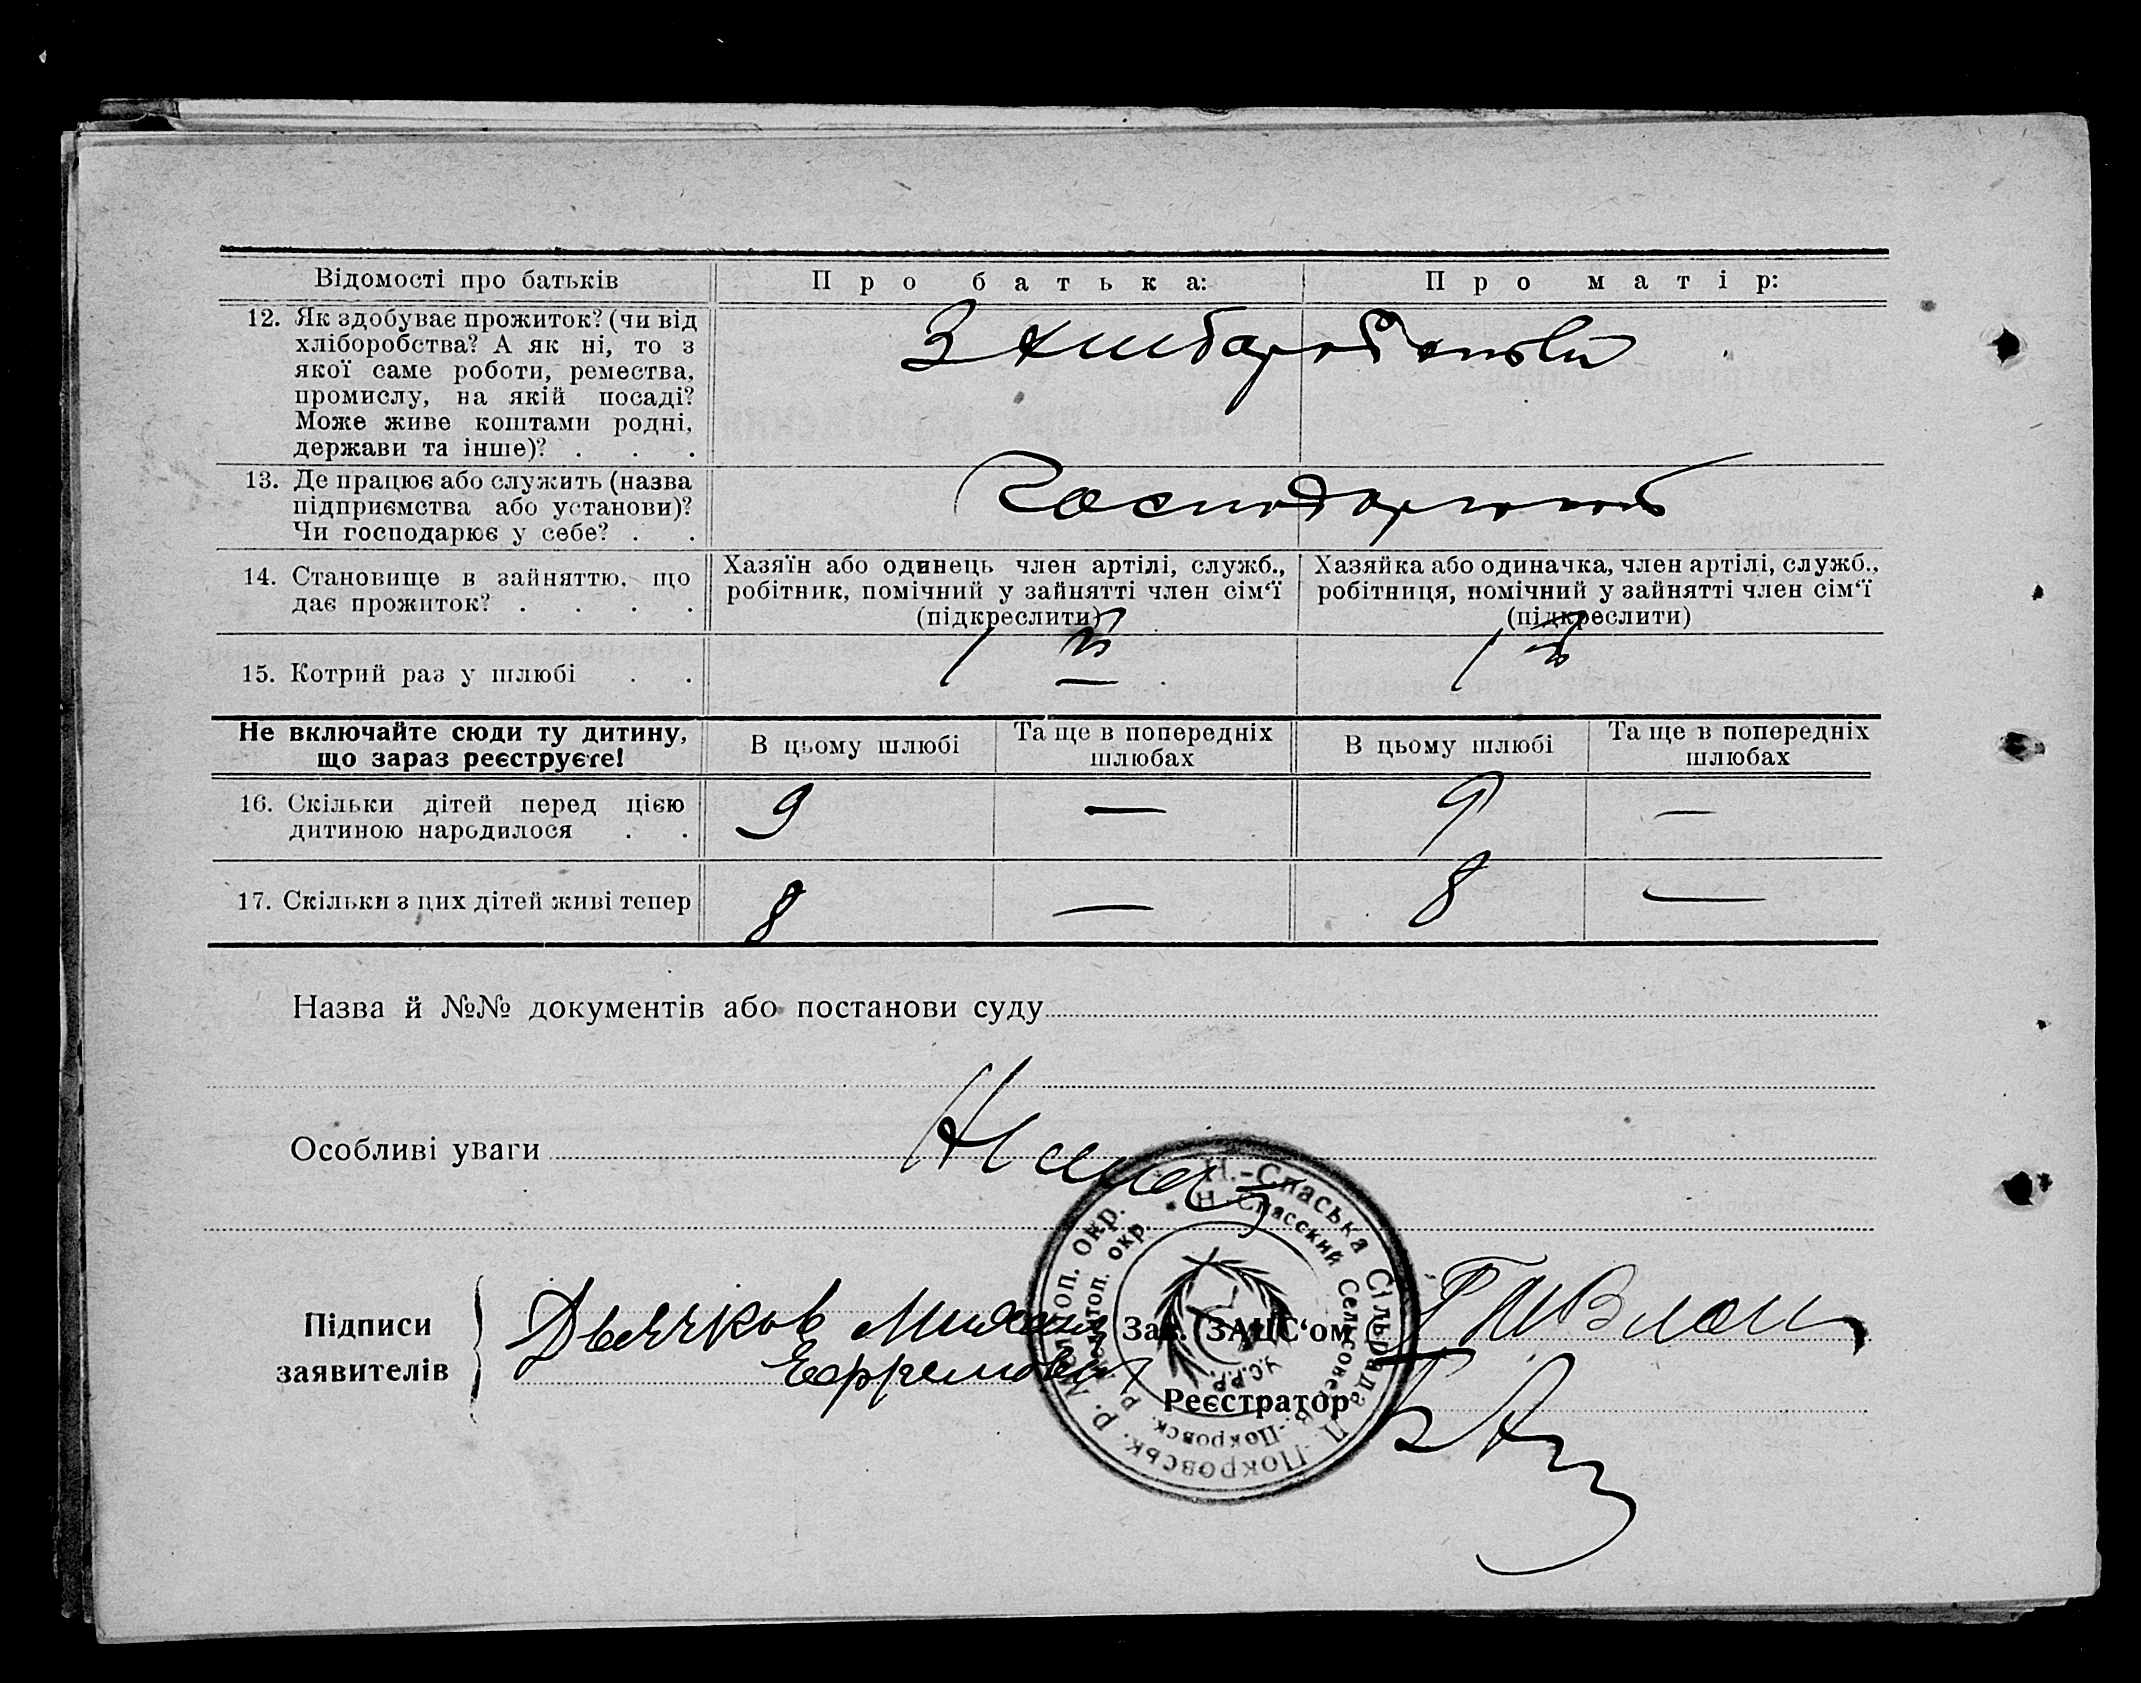 Відомості про батьків
Про батька:
Про матір:
12. Як здобуває прожиток? (чи від
хліборобства? А як ні, то з
якої саме роботи, ремества,
промислу, на якій посаді?
Може живе коштами родні,
держави та інше)? . . .
З
13. Де працює або служить (назва
підприємства або установи)?
Чи господарює у себе? . .
14. Становище в зайняттю, що
дає прожиток? . . . .
Хазяїн або одинець член артілі, служб.,
робітник, помічний у зайнятті член сім‘ї
(підкреслити)
Хазяйка або одиначка, член артілі, служб.,
робітниця, помічний у зайнятті член сім‘ї
(підкреслити)
15. Котрий раз у шлюбі . .
1 й
1 й
Не включайте сюди ту дитину,
що зараз реєструєте!
В цьому шлюбі
Та ще в попередніх
шлюбах
В цьому шлюбі
Та ще в попередніх
шлюбах
16. Скільки дітей перед цією
дитиною народилося . .
9 — 9 —
17. Скільки з цих дітей живі тепер
8 — 8 —
Назва й №№ документів або постанови суду
Особливі уваги
Н.-Спаська Сільрада Н.-Покровськ. р. Мелітоп. окр.
Н.-Спасский Сельсовет В.-Покровск. р. Мелитоп. окр.
У.С.Р.Р.
Підписи
заявителів
Дьячков Михаил
Ефремович
Зав. ЗАЦС‘ом
Реєстратор